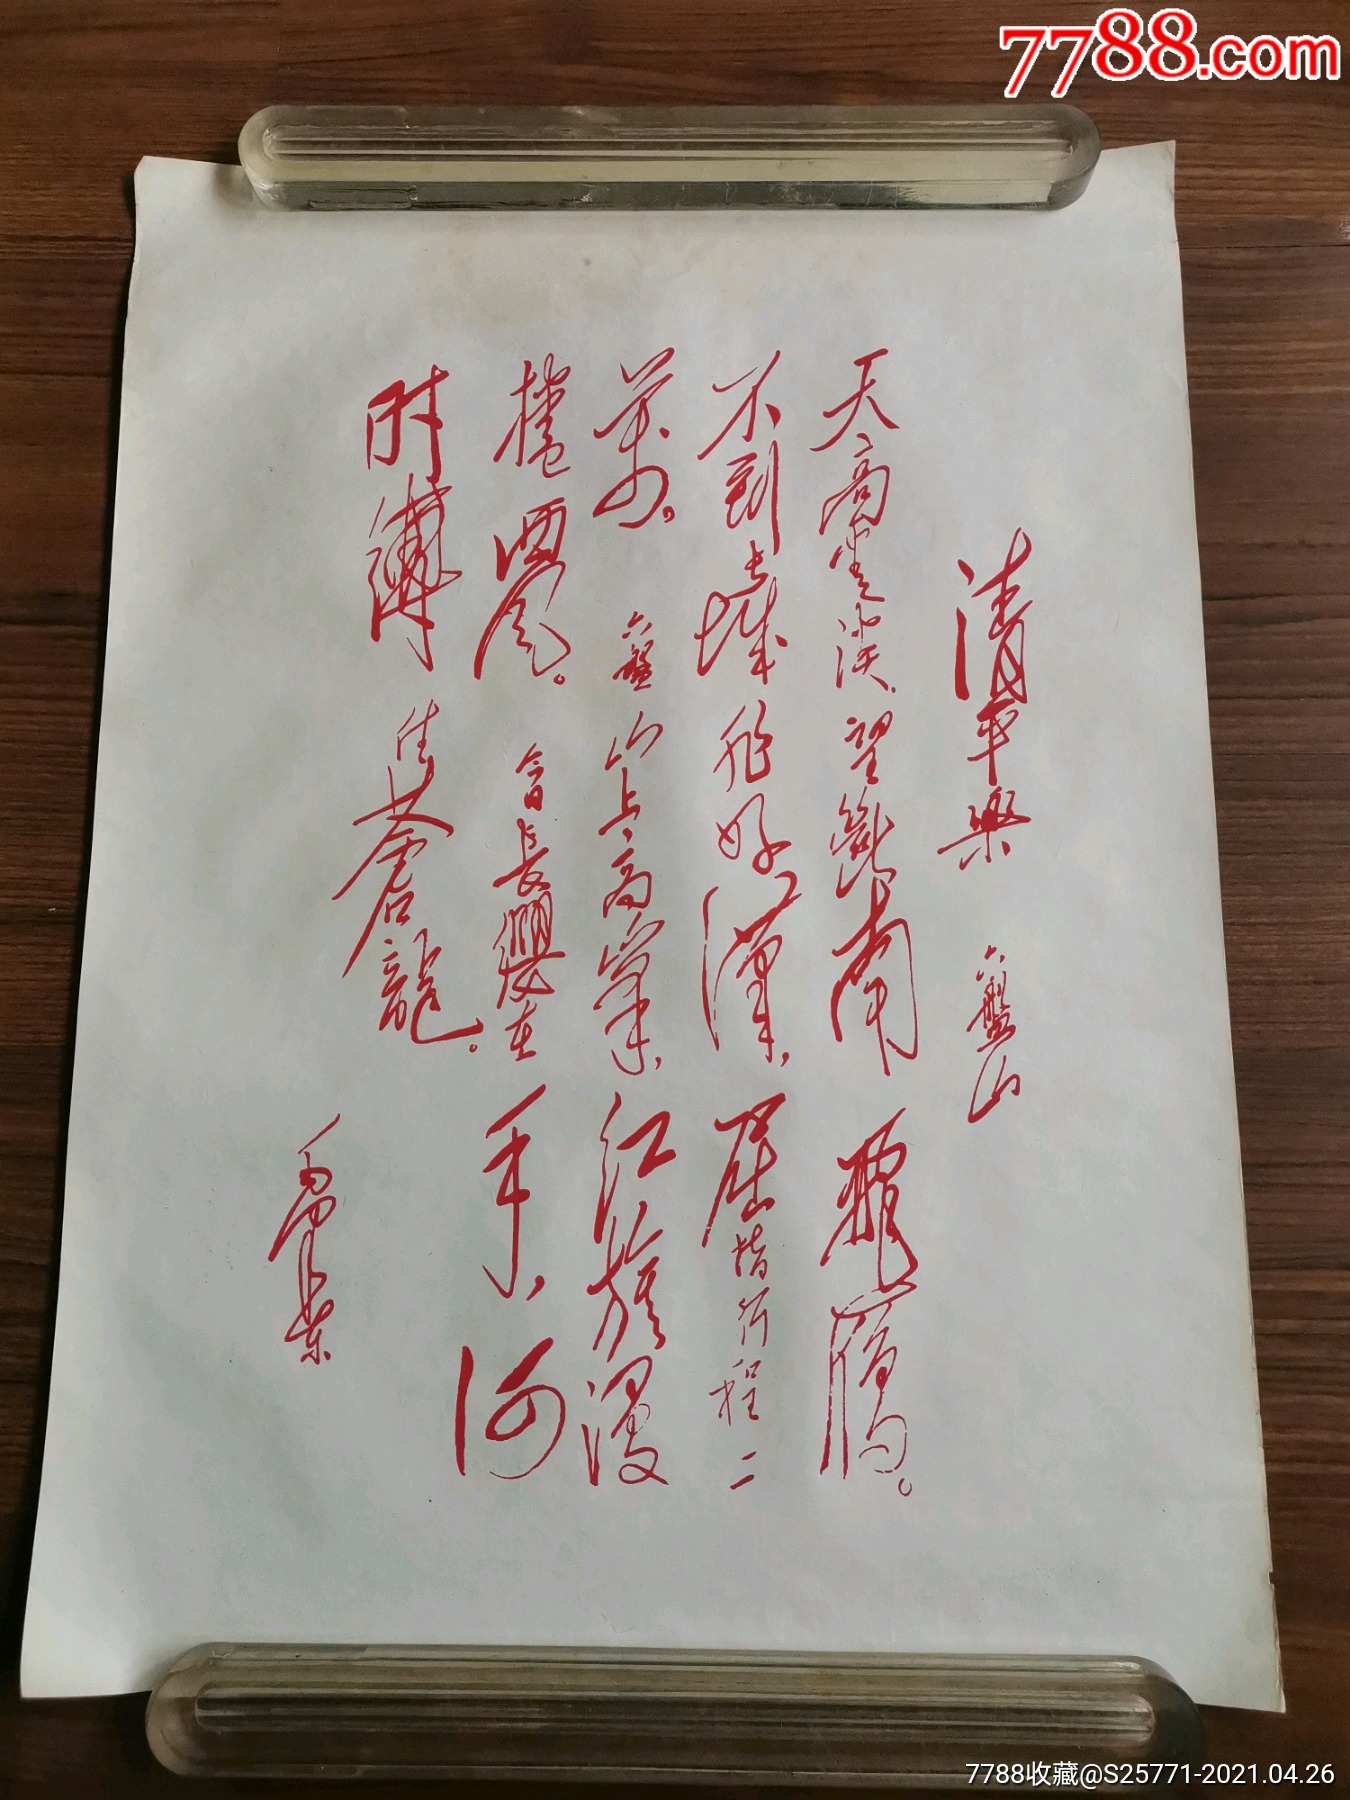 7788.com
清平樂 六盤山
天高雲淡、望斷南飛雁。
不到長城非好漢、屈指行程二
萬。六盤山上高峯、紅旗漫
捲西風。今日長纓在手、何
時縛住蒼龍。
毛澤東
7788收藏@S25771-2021.04.26